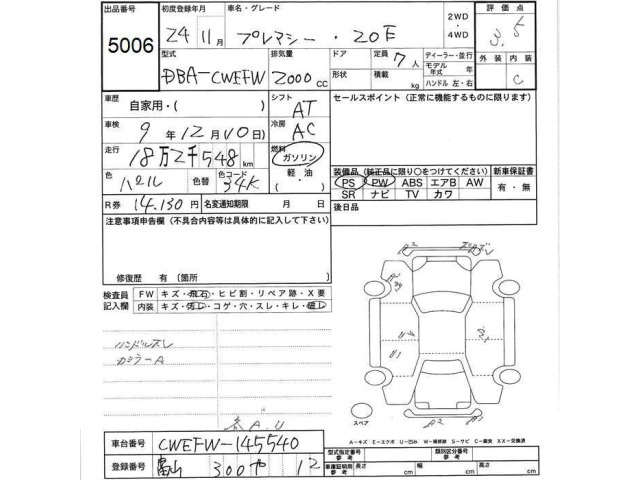 出品番号 初度登録年月 車名・グレード 2WD ・ 4WD 評価点
5006 24 11月 プレマシー ・ 20E 3.5
型式 排気量 ドア ・ 形状 定員 7人 積載 kg ディーラー・並行 モデル年式 年 ハンドル 左・右 外装 内装
DBA-CWEFW 2000cc C
車歴 自家用・( ) シフト AT セールスポイント(正常に機能するものに限ります)
車検 9年12月10日) 冷房 AC
走行 18万2千548km 燃料 ガソリン 軽油 ・( )
色 パール 色替 色コード 34K
装備品(純正品に限り○をつけてください) 新車保証書
PS PW ABS エアB AW 有・無
SR ナビ TV カワ
R券 14.130円 名変通知期限 月 日 後日品
注意事項申告欄(不具合内容等は具体的に記入して下さい)
修復歴 有(箇所
検査員記入欄 FW キズ・飛石・ヒビ割・リペア跡・X要
内装 キズ・汚レ・コゲ・穴・スレ・キレ・破レ
ハンドルスレ
カジラーA
スペア
A-キズ E-エクボ U-凹み W-補修跡 S-サビ C-腐食 XX-交換済
車台番号 CWEFW-145540
登録番号 富山 300 や 12
型式指定番号 参考 類別区分番号 参考
車庫証明用 参考 長さ cm 幅 cm 高さ cm